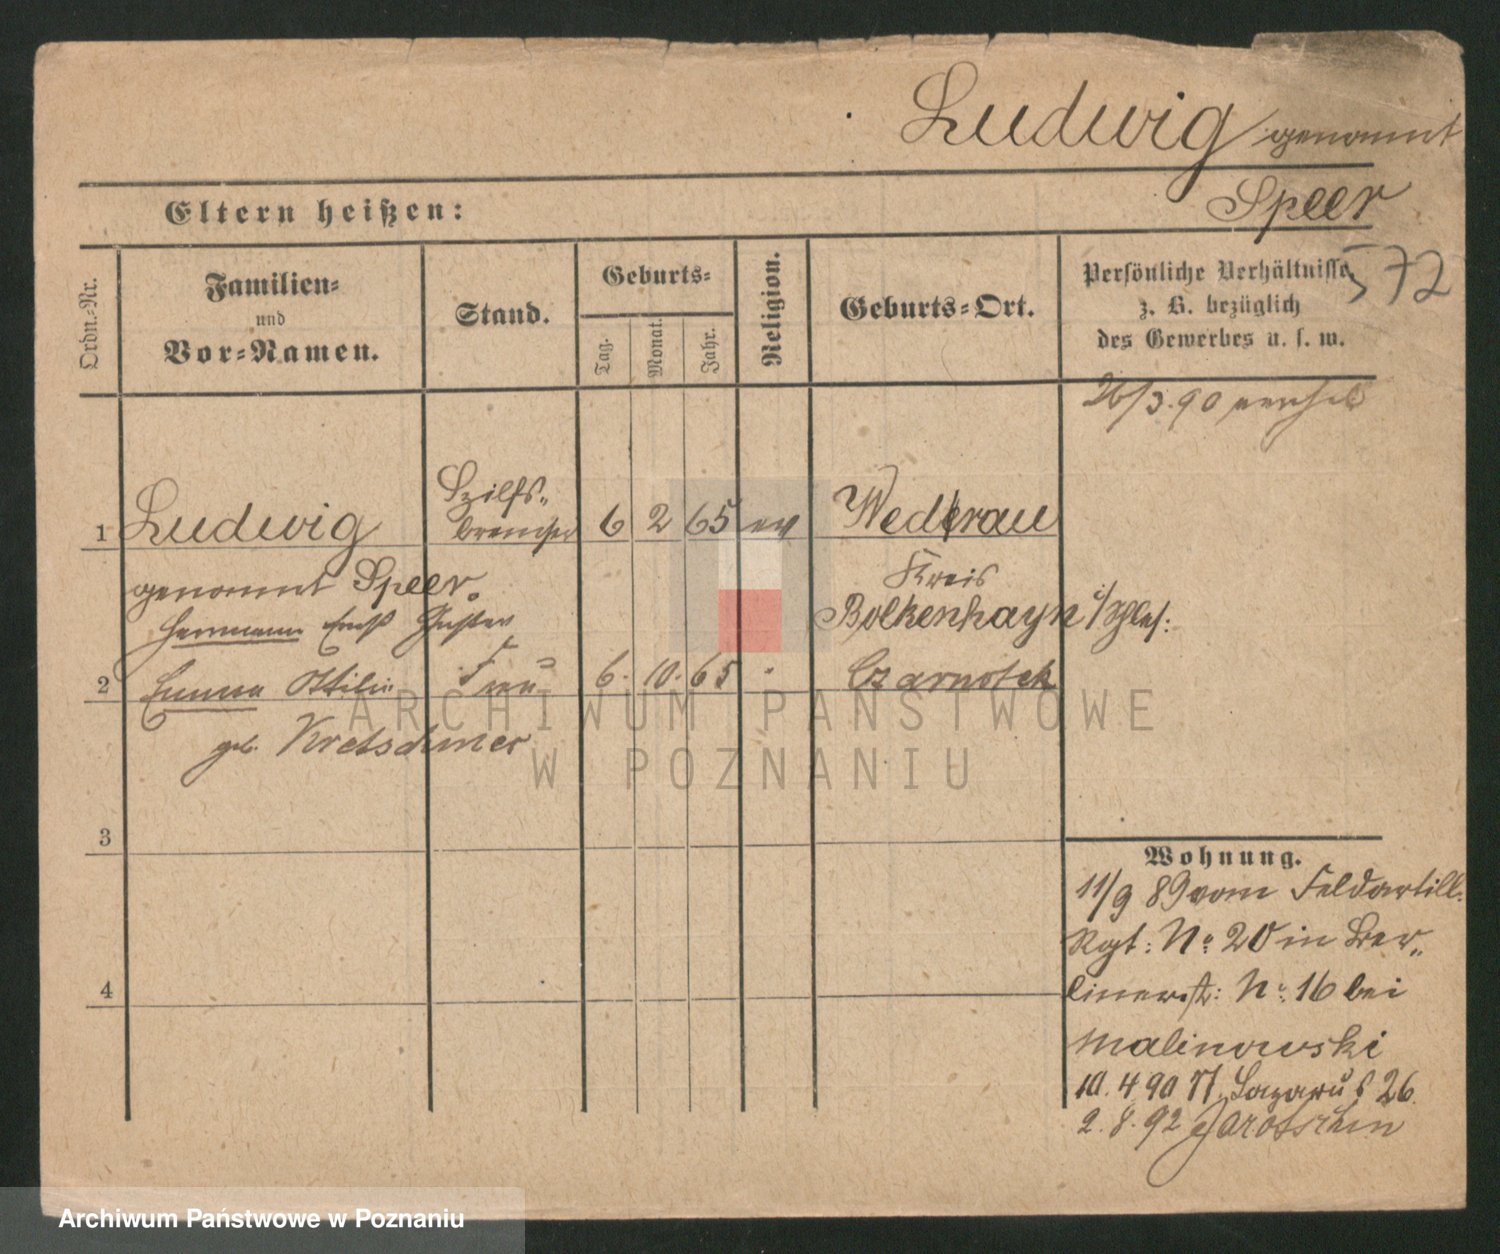 Ludwig genannt
Speer
Eltern heißen:
572
Ordn.-Nr.
Familien-
und
Vor-Namen.
Stand.
Geburts-
Tag.
Monat.
Jahr.
Religion.
Geburts-Ort.
Persönliche Verhältnisse
z. B. bezüglich
des Gewerbes u. s. w.
26/3.90 verh
1 Ludwig Hilfs-
bremser 6 2 65 ev Wederau
genannt Speer.
Herrmann Ernst Gustav
Kreis
Bolkenhayn i/Schles:
2 Emma Ottilie Frau 6. 10. 65 " Czarnotek
geb. Kretschmer
3
4
Wohnung.
11/9 89 vom Feldartill.
Rgt: No 20 in Ber-
linerst: No 16 bei
Malinowski
10. 4 90 St. Lazarus 26.
2. 8. 92 Jarotschin
ARCHIWUM PAŃSTWOWE
W POZNANIU
Archiwum Państwowe w Poznaniu